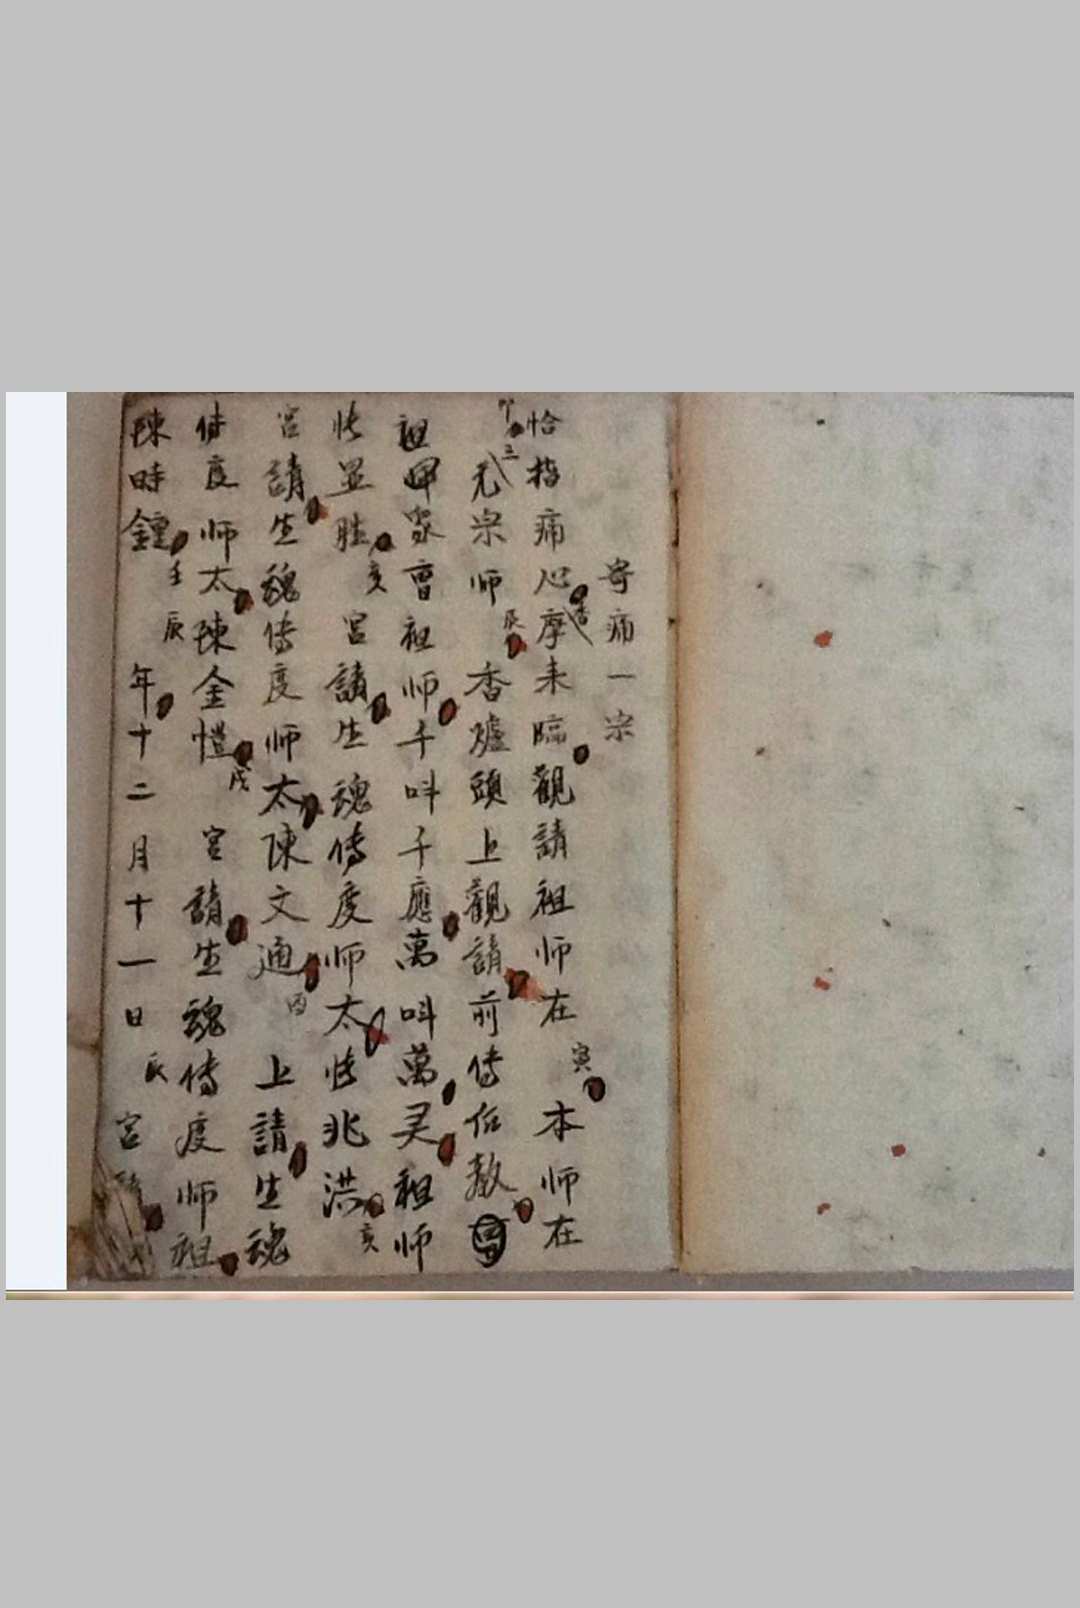 寄痛一宗
恰指痛心摩来臨觀請祖师在寅本师在
元宗师辰香爐頭上觀請前傳后教
祖师千叫千應萬叫萬灵祖师
亥宫請生魂傳度师太兆洪亥
宫請生魂傳度师太陳文通丙上請生魂
傳度师太陳金戊宫請生魂傳度师祖
陳時鐘壬辰年十二月十一日辰宫